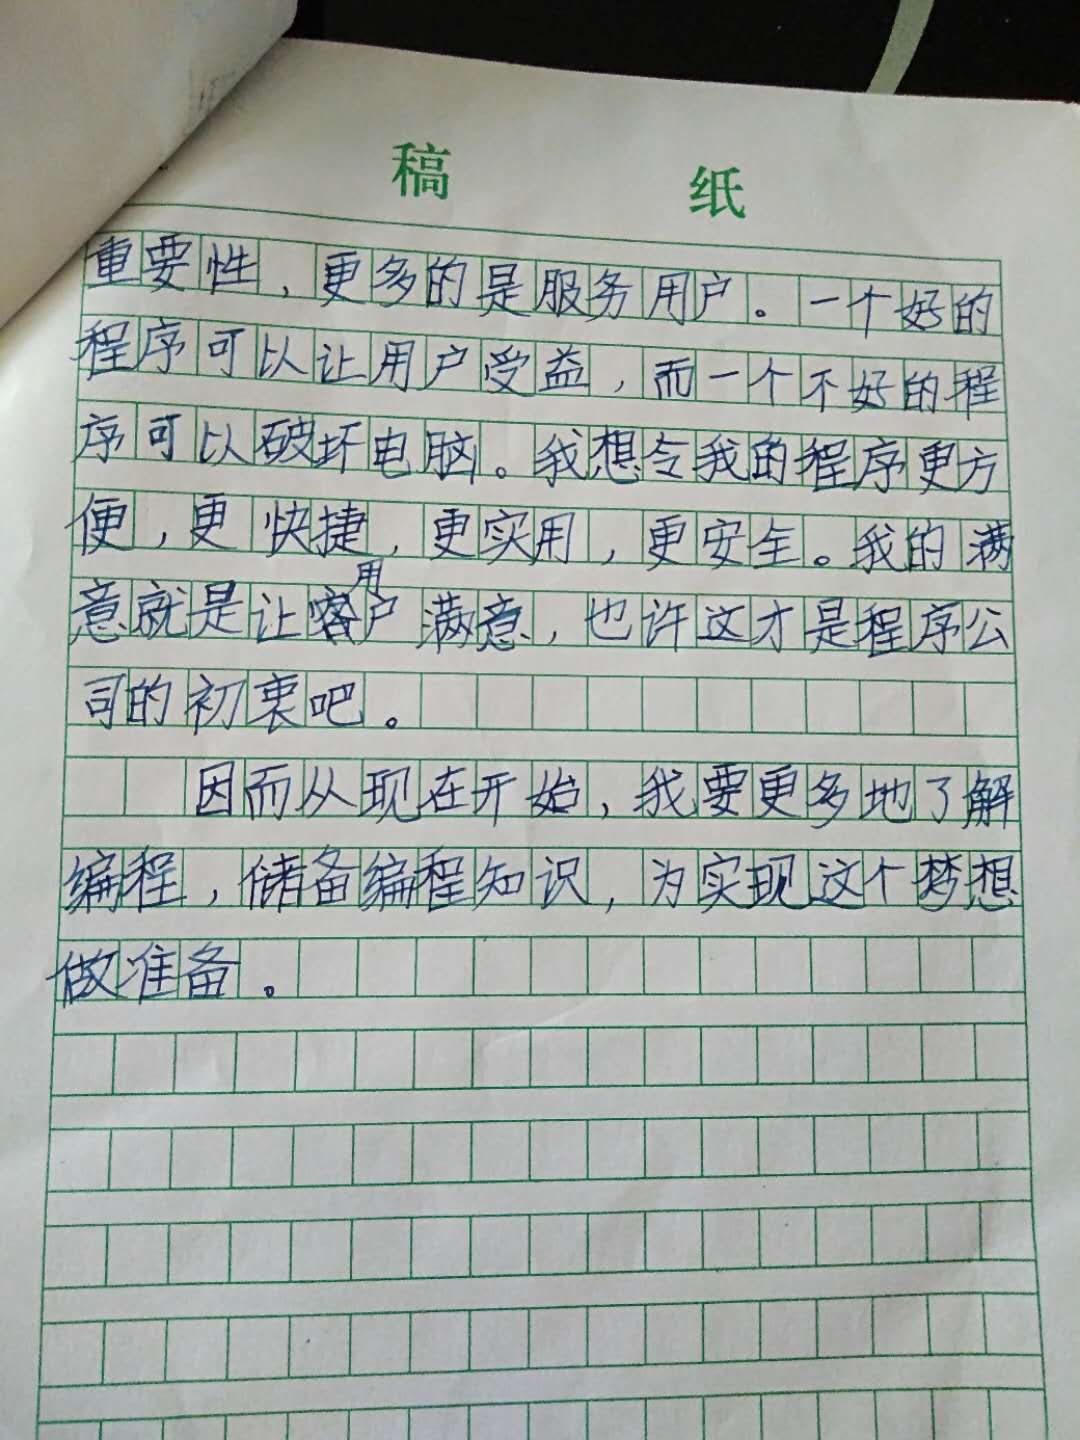 稿纸
重要性，更多的是服务用户。一个好的
程序可以让用户受益，而一个不好的程
序可以破坏电脑。我想令我的程序更方
便，更快捷，更实用，更安全。我的满
意就是让用户满意，也许这才是程序公
司的初衷吧。
因而从现在开始，我要更多地了解
编程，储备编程知识，为实现这个梦想
做准备。